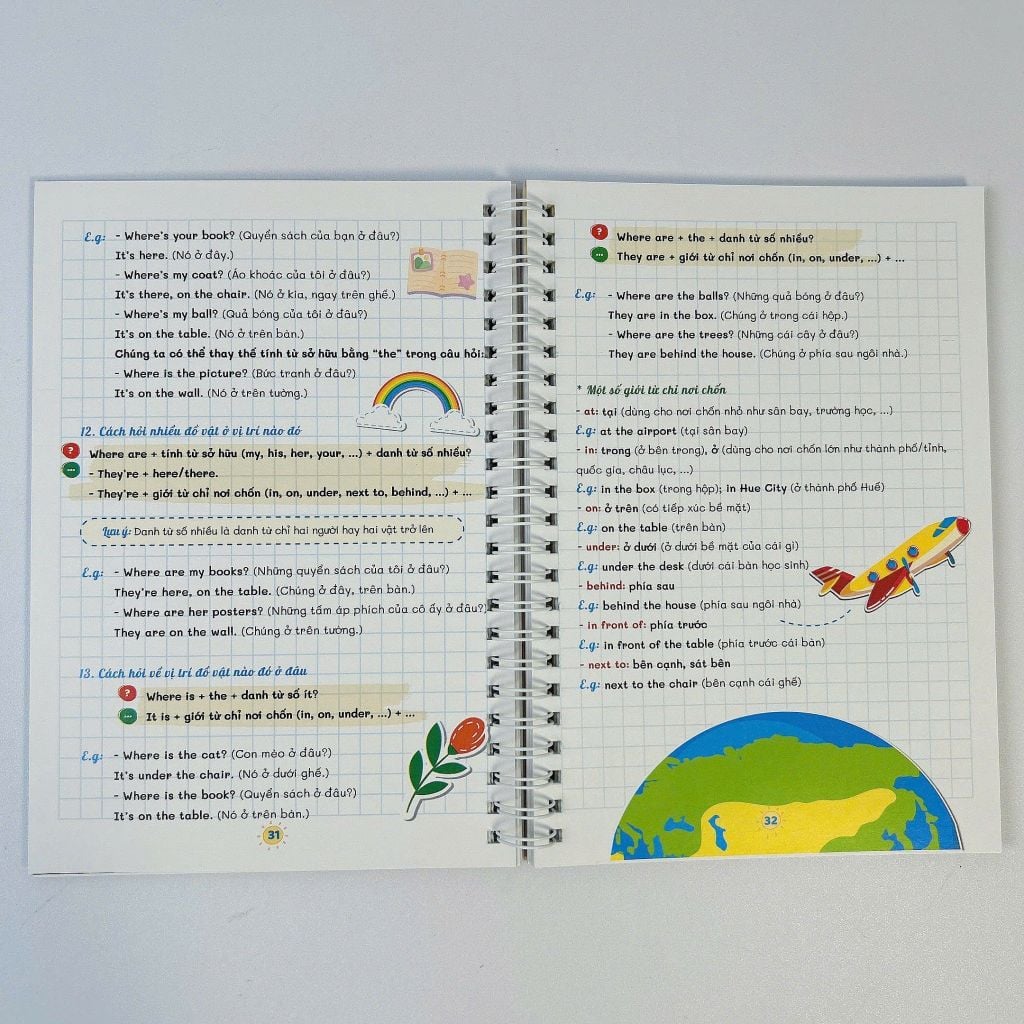 E.g: - Where's your book? (Quyển sách của bạn ở đâu?)
It's here. (Nó ở đây.)
- Where's my coat? (Áo khoác của tôi ở đâu?)
It's there, on the chair. (Nó ở kia, ngay trên ghế.)
- Where's my ball? (Quả bóng của tôi ở đâu?)
It's on the table. (Nó ở trên bàn.)
Chúng ta có thể thay thế tính từ sở hữu bằng "the" trong câu hỏi:
- Where is the picture? (Bức tranh ở đâu?)
It's on the wall. (Nó ở trên tường.)
12. Cách hỏi nhiều đồ vật ở vị trí nào đó
? Where are + tính từ sở hữu (my, his, her, your, ...) + danh từ số nhiều?
... - They're + here/there.
- They're + giới từ chỉ nơi chốn (in, on, under, next to, behind, ...) + ...
Lưu ý: Danh từ số nhiều là danh từ chỉ hai người hay hai vật trở lên
E.g: - Where are my books? (Những quyển sách của tôi ở đâu?)
They're here, on the table. (Chúng ở đây, trên bàn.)
- Where are her posters? (Những tấm áp phích của cô ấy ở đâu?)
They are on the wall. (Chúng ở trên tường.)
13. Cách hỏi về vị trí đồ vật nào đó ở đâu
? Where is + the + danh từ số ít?
... It is + giới từ chỉ nơi chốn (in, on, under, ...) + ...
E.g: - Where is the cat? (Con mèo ở đâu?)
It's under the chair. (Nó ở dưới ghế.)
- Where is the book? (Quyển sách ở đâu?)
It's on the table. (Nó ở trên bàn.)
31
? Where are + the + danh từ số nhiều?
... They are + giới từ chỉ nơi chốn (in, on, under, ...) + ...
E.g: - Where are the balls? (Những quả bóng ở đâu?)
They are in the box. (Chúng ở trong cái hộp.)
- Where are the trees? (Những cái cây ở đâu?)
They are behind the house. (Chúng ở phía sau ngôi nhà.)
* Một số giới từ chỉ nơi chốn
- at: tại (dùng cho nơi chốn nhỏ như sân bay, trường học, ...)
E.g: at the airport (tại sân bay)
- in: trong (ở bên trong), ở (dùng cho nơi chốn lớn như thành phố/tỉnh,
quốc gia, châu lục, ...)
E.g: in the box (trong hộp); in Hue City (ở thành phố Huế)
- on: ở trên (có tiếp xúc bề mặt)
E.g: on the table (trên bàn)
- under: ở dưới (ở dưới bề mặt của cái gì)
E.g: under the desk (dưới cái bàn học sinh)
- behind: phía sau
E.g: behind the house (phía sau ngôi nhà)
- in front of: phía trước
E.g: in front of the table (phía trước cái bàn)
- next to: bên cạnh, sát bên
E.g: next to the chair (bên cạnh cái ghế)
32